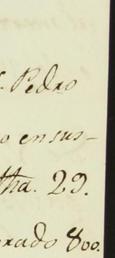 Pedro
o en sus-
tha. 29.
rado 800.